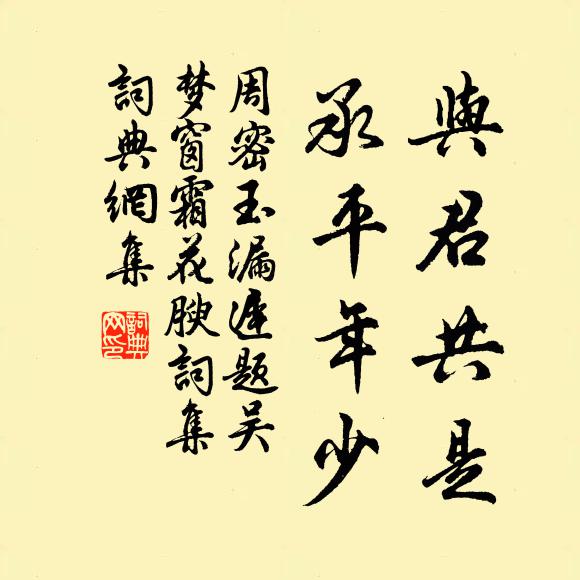 與君共是
承平年少
周密玉漏遲題吴
梦窗霜花腴詞集
詞典網集
詞典
网印